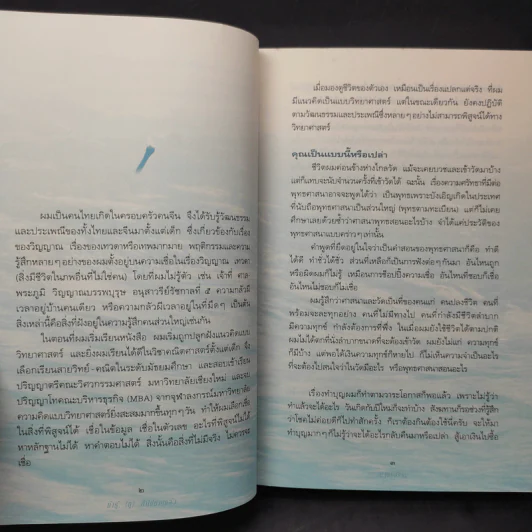 ผมเป็นคนไทยเกิดในครอบครัวคนจีน จึงได้รับรู้วัฒนธรรม
และประเพณีของทั้งไทยและจีนมาตั้งแต่เด็ก ซึ่งเกี่ยวข้องกับเรื่อง
ของวิญญาณ เรื่องของเทวดาหรือเทพมากมาย พฤติกรรมและความ
รู้สึกหลายๆอย่างของผมตั้งอยู่บนความเชื่อในเรื่องวิญญาณ เทวดา
(สิ่งมีชีวิตในภพอื่นที่ไม่ใช่คน) โดยที่ผมไม่รู้ตัว เช่น เจ้าที่ ศาล
พระภูมิ วิญญาณบรรพบุรุษ อนุสาวรีย์รัชกาลที่ ๕ ความกลัวผี
เวลาอยู่บ้านคนเดียว หรือความกลัวผีเวลาอยู่ในที่มืดๆ เป็นต้น
สิ่งเหล่านี้คือสิ่งที่ฝังอยู่ในความรู้สึกคนส่วนใหญ่เช่นกัน
ในตอนที่ผมเริ่มเรียนหนังสือ ผมเริ่มถูกปลูกฝังแนวคิดแบบ
วิทยาศาสตร์ และยิ่งผมเรียนได้ดีในวิชาคณิตศาสตร์ตั้งแต่เด็ก จึง
เลือกเรียนสายวิทย์-คณิตในระดับมัธยมศึกษา และสอบเข้าเรียน
ปริญญาตรีคณะวิศวกรรมศาสตร์ มหาวิทยาลัยเชียงใหม่ และจบ
ปริญญาโทคณะบริหารธุรกิจ (MBA) จากจุฬาลงกรณ์มหาวิทยาลัย
ความคิดแบบวิทยาศาสตร์ยิ่งสะสมมากขึ้นทุกๆวัน ทำให้ผมเลือกเชื่อ
ในสิ่งที่พิสูจน์ได้ เชื่อในข้อมูล เชื่อในตัวเลข อะไรที่พิสูจน์ไม่ได้
หาหลักฐานไม่ได้ หาคำตอบไม่ได้ สิ่งนั้นคือสิ่งที่ไม่มีจริง ไม่ควรจะ
เชื่อ
๒
เมื่อมองดูชีวิตของตัวเอง เหมือนเป็นเรื่องแปลกแต่จริง ที่ผม
มีแนวคิดเป็นแบบวิทยาศาสตร์ แต่ในขณะเดียวกัน ยังคงปฏิบัติ
ตามวัฒนธรรมและประเพณีซึ่งหลายๆอย่างไม่สามารถพิสูจน์ได้ทาง
วิทยาศาสตร์
คุณเป็นแบบนี้หรือเปล่า
ชีวิตผมค่อนข้างห่างไกลวัด แม้จะเคยบวชและเข้าวัดมาบ้าง
แต่ก็แทบจะนับจำนวนครั้งที่เข้าวัดได้ ฉะนั้น เรื่องความศรัทธาที่มีต่อ
พุทธศาสนาอาจจะพูดได้ว่า เป็นพุทธเพราะบังเอิญเกิดในประเทศ
ที่นับถือพุทธศาสนาเป็นส่วนใหญ่ (พุทธตามทะเบียน) แต่ก็ไม่เคย
ศึกษาเลยด้วยซ้ำว่าศาสนาพุทธสอนอะไรบ้าง จำได้แต่ประวัติของ
พุทธศาสนาแบบคร่าวๆเท่านั้น
คำพูดที่ยึดอยู่ในใจว่าเป็นคำสอนของพุทธศาสนาก็คือ ทำดี
ได้ดี ทำชั่วได้ชั่ว ส่วนที่เหลือก็เป็นการฟังต่อๆกันมา อันไหนถูก
หรือผิดผมก็ไม่รู้ เหมือนการช้อปปิ้งความเชื่อ อันไหนที่ชอบก็เชื่อ
อันไหนไม่ชอบก็ไม่เชื่อ
ผมรู้สึกว่าศาสนาและวัดเป็นที่ของคนแก่ คนปลงชีวิต คนที่
พร้อมจะละทุกอย่าง คนที่ไม่มีทางไป คนที่กำลังมีชีวิตลำบาก
มีความทุกข์ กำลังต้องการที่พึ่ง ในเมื่อผมยังใช้ชีวิตได้ตามปกติ
ผมไม่ได้ตกที่นั่งลำบากขนาดที่จะต้องเข้าวัด ผมยังไม่แก่ ความทุกข์
ก็มีบ้าง แต่พอได้เงินความทุกข์ก็หายไป ก็ไม่เห็นความจำเป็นอะไร
ที่จะต้องไปสนใจว่าในวัดมีอะไร หรือพุทธศาสนาสอนอะไร
เรื่องทำบุญผมก็ทำตามวาระโอกาสก็พอแล้ว เพราะไม่รู้ว่า
ทำแล้วจะได้อะไร วันเกิดกับปีใหม่ก็จะทำบ้าง สังฆทานก็รอช่วงที่รู้สึก
ว่าโชคไม่ค่อยดีก็ไปทำสักครั้ง ก็เราก็ต้องใช้นี่ครับ จะให้มา
ทำบุญมากๆก็ไม่รู้ว่าจะได้อะไรกลับคืนมาหรือเปล่า สู้เอาเงินไปซื้อ
๓